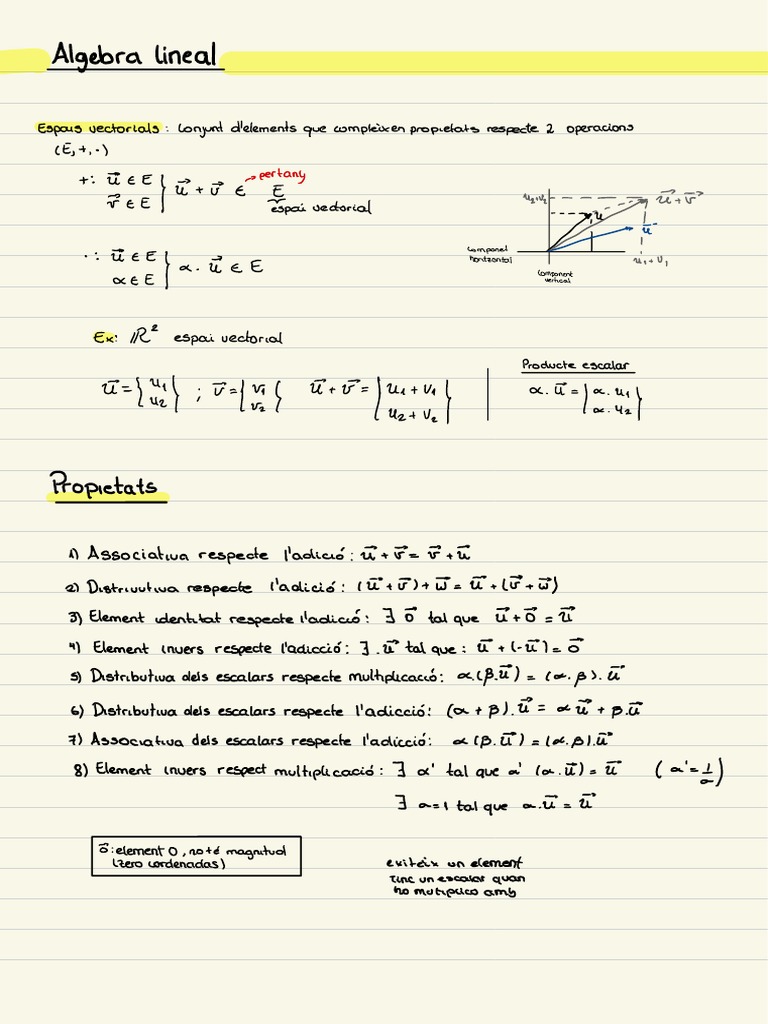 Algebra lineal
Espais vectorials: Conjunt d'elements que compleixen propietats respecte 2 operacions
(E, +, ·)
+: u⃗ ∈ E
v⃗ ∈ E } u⃗ + v⃗ ∈ E
pertany
espai vectorial
·: u⃗ ∈ E
α ∈ E } α · u⃗ ∈ E
u2+v2
u
u⃗+v⃗
component
horitzontal
component
vertical
u1+v1
Ex: ℝ² espai vectorial
Producte escalar
u⃗ = { u1 u2 } ; v⃗ = { v1 v2 } u⃗ + v⃗ = { u1 + v1 u2 + v2 }
α · u⃗ = { α · u1 α · u2 }
Propietats
1) Associativa respecte l'adició: u⃗ + v⃗ = v⃗ + u⃗
2) Distrivutiva respecte l'adició: (u⃗ + v⃗) + w⃗ = u⃗ + (v⃗ + w⃗)
3) Element identitat respecte l'adició: ∃ 0⃗ tal que u⃗ + 0⃗ = u⃗
4) Element invers respecte l'adicció: ∃ · u⃗ tal que: u⃗ + (-u⃗) = 0⃗
5) Distributiva dels escalars respecte multiplicació: α · (β · u⃗) = (α · β) · u⃗
6) Distributiva dels escalars respecte l'adicció: (α + β) · u⃗ = α u⃗ + β · u⃗
7) Associativa dels escalars respecte l'adicció: α (β · u⃗) = (α · β) · u⃗
8) Element invers respect multiplicació: ∃ α' tal que α' (α · u⃗) = u⃗ (α' = 1/α)
∃ α = 1 tal que α · u⃗ = u⃗
0⃗: element 0, no té magnitud
(zero cordenadas)
exiteix un element
tinc un escalar quan
ho mutiplico amb